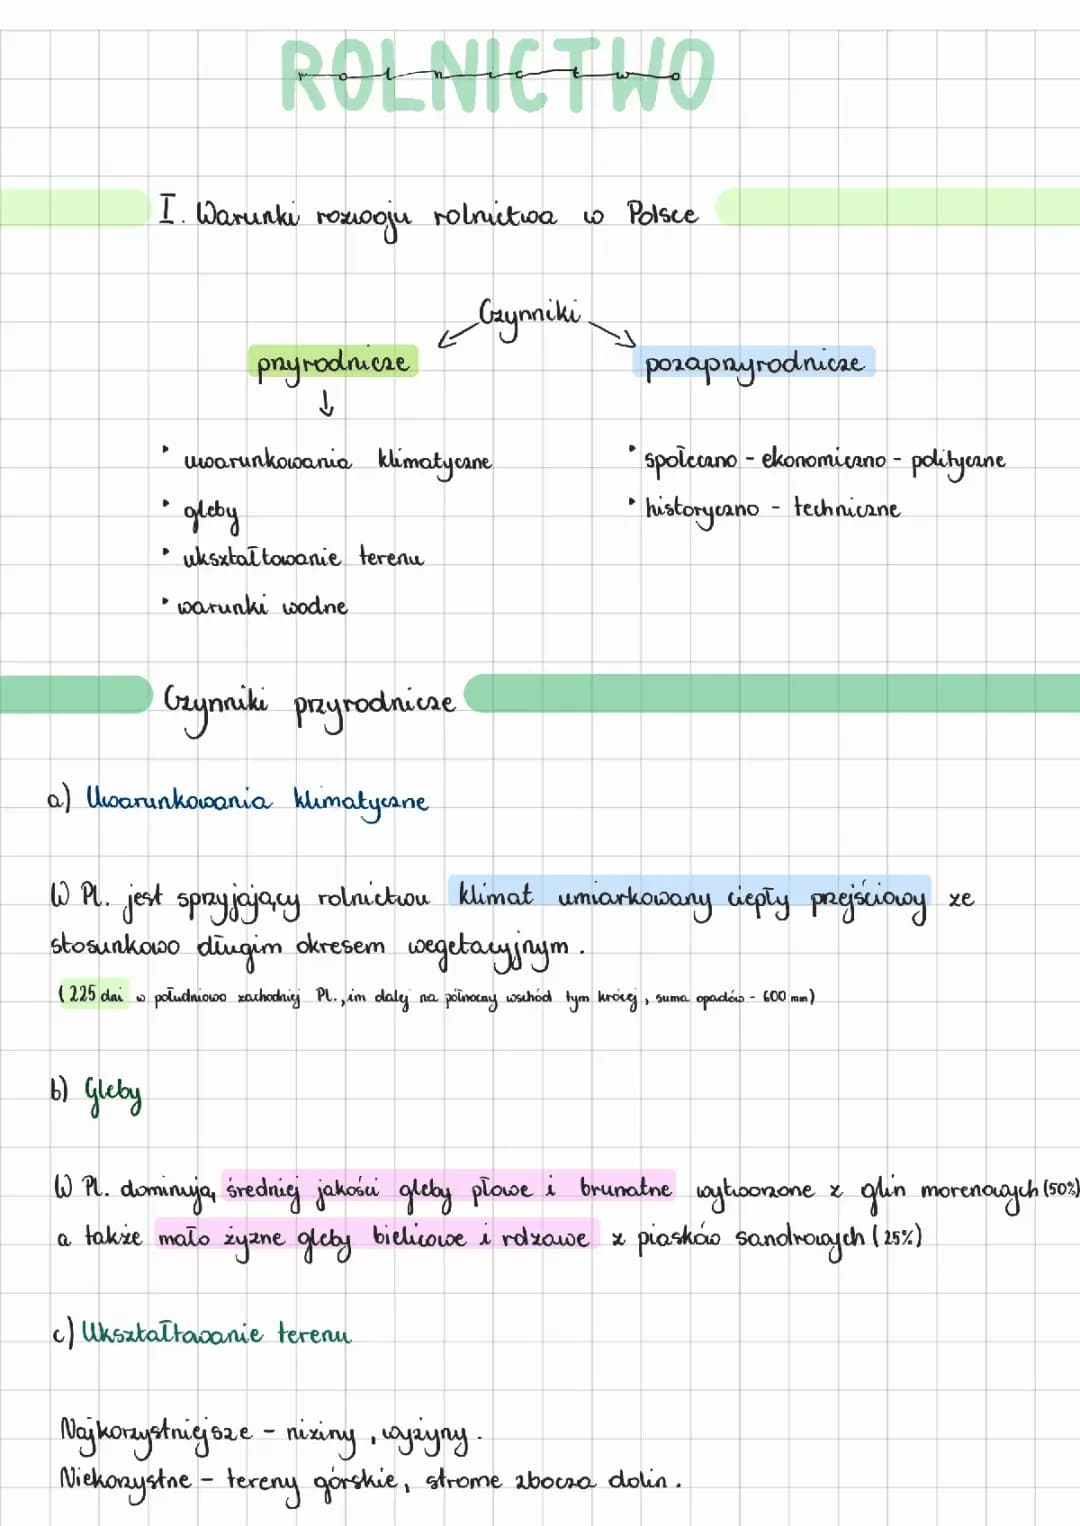 ROLNICTWO
rolnictwo
I. Warunki rozwoju rolnictwa w Polsce
Czynniki
przyrodnicze
pozaprzyrodnicze
• uwarunkowania klimatyczne
• gleby
• ukształtowanie terenu
• warunki wodne
• społeczno - ekonomiczno - polityczne
• historyczno - techniczne
Czynniki przyrodnicze
a) Uwarunkowania klimatyczne
W PL. jest sprzyjający rolnictwu klimat umiarkowany ciepły przejściowy ze
stosunkowo długim okresem wegetacyjnym.
(225 dni w południowo zachodniej PL., im dalej na północny wschód tym krócej, suma opadów - 600 mm)
b) Gleby
W PL. dominują średniej jakości gleby płowe i brunatne wytworzone z glin morenowych (50%)
a także mało żyzne gleby bielicowe i rdzawe z piasków sandrowych (25%)
c) Ukształtowanie terenu
Najkorzystniejsze - niziny, wyżyny.
Niekorzystne - tereny górskie, strome zbocza dolin.